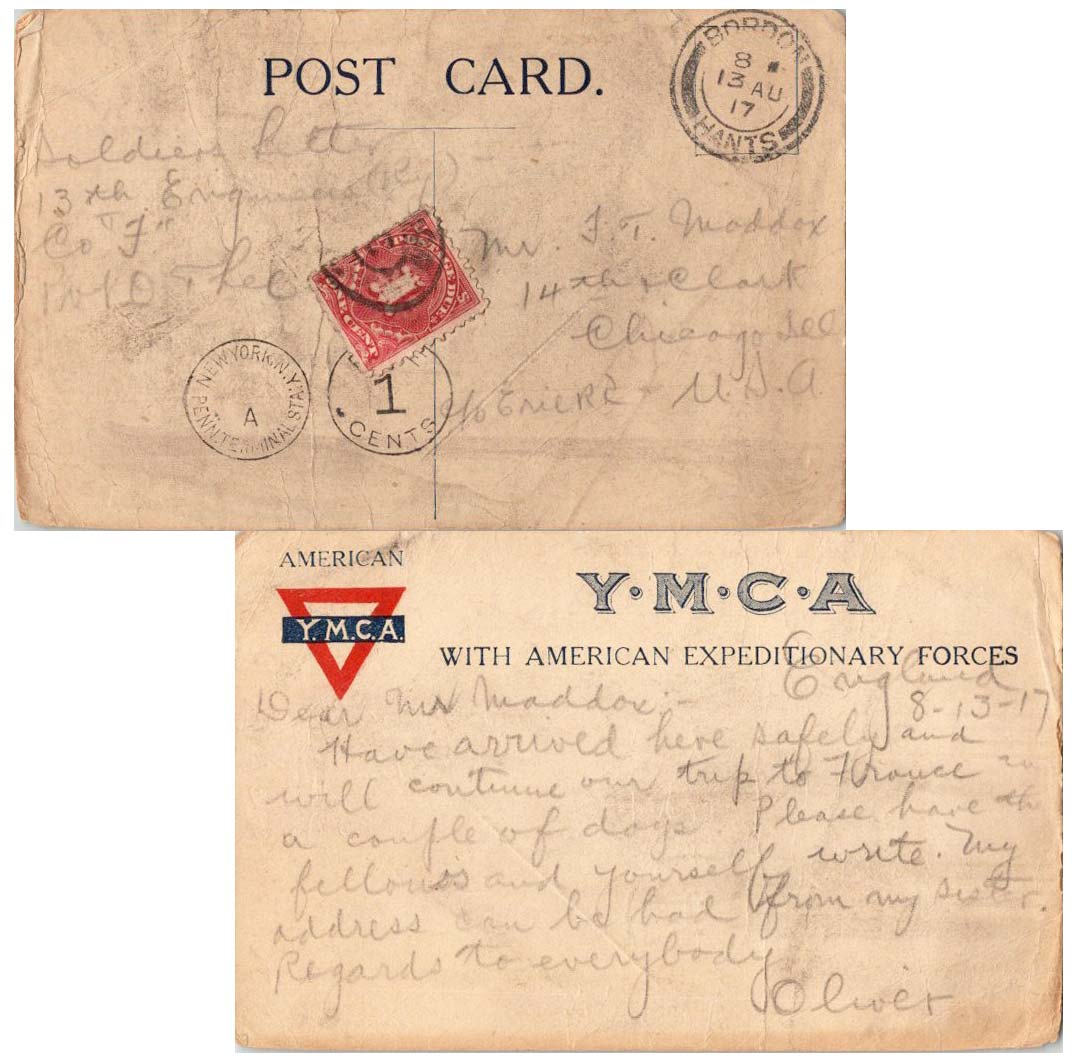 POST CARD.
BORDON
8
13 AU
17
HANTS
Soldiers Lett
13th Engineers (Ry)
Co "F"
Mr. F. T. Maddox
14th & Clark
Chicago Ill
c/o Erie RR - U.S.A
POSTAGE DUE
ONE CENT
NEW YORK, N.Y.
A
PENN. TERMINAL STA.
1
CENTS
AMERICAN
Y.M.C.A.
Y·M·C·A
WITH AMERICAN EXPEDITIONARY FORCES
England
8-13-17
Dear Mr Maddox:-
Have arrived here safely and
will contine our trip to France in
a couple of days. Please have the
fellows and yourself write. My
address can be had from my sister.
Regards to everybody
Oliver